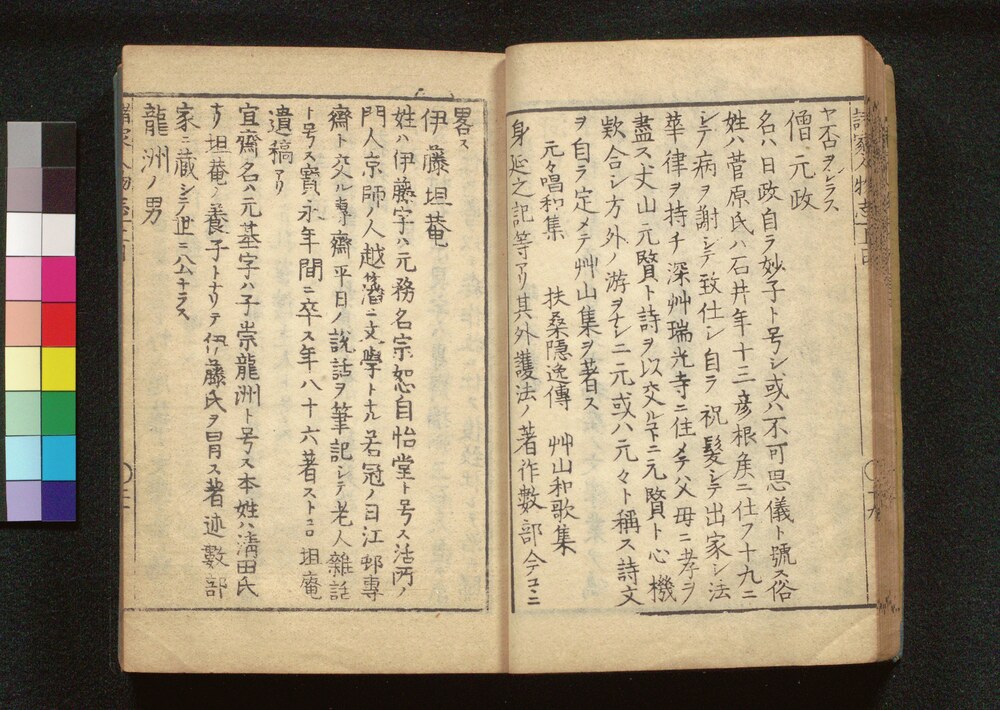 ヤ否ヲシラス
僧元政
名ハ日政自ラ妙子ト号シ或ハ不可思儀ト號ス俗
姓ハ菅原氏ハ石井年十三彦根矦ニ仕フ十九ニ
シテ病ヲ謝シテ致仕シ自ラ祝髪シテ出家シ法
華律ヲ持チ深艸瑞光寺ニ住メテ父母ニ孝ヲ
盡ス丈山元贇ト詩ヲ以交ル下ニ元贇ト心機
欵合シ方外ノ游ヲナシニ元或ハ元々ト稱ス詩文
ヲ自ラ定メテ艸山集ヲ著ス
元々唱和集 扶桑隠逸傳 艸山和歌集
身延之記等アリ其外護法ノ著作數部今コヽニ
畧ス
伊藤坦菴
姓ハ伊藤字ハ元務名宗恕自怡堂ト号ス活所ノ
門人京師ノ人越藩ニ文學トナル若冠ノ日江邨專
齋ト交ル專齋平日ノ説話ヲ筆記シテ老人雜話
ト号ス寳永年間ニ卒ス年八十六著ストコロ坦庵
遺稿アリ
宜齋名ハ元基字ハ子崇龍洲ト号ス本姓ハ清田氏
ナリ坦菴ノ養子トナリテ伊藤氏ヲ冒ス著述數部
家ニ藏シテ世ニ公ナラス
龍洲ノ男